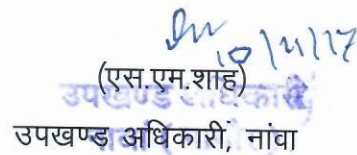 10/11/17
(एस.एम.शाह)
उपखण्ड अधिकारी
उपखण्ड अधिकारी, नांवा